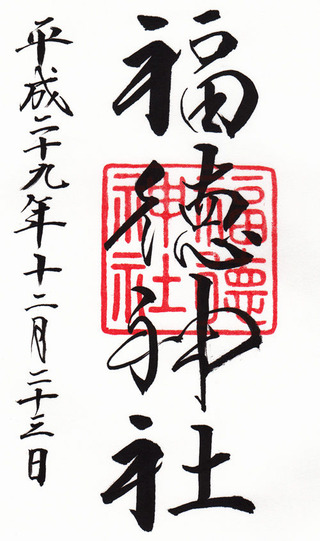 福徳神社
福徳神社
平成二十九年十二月二十三日